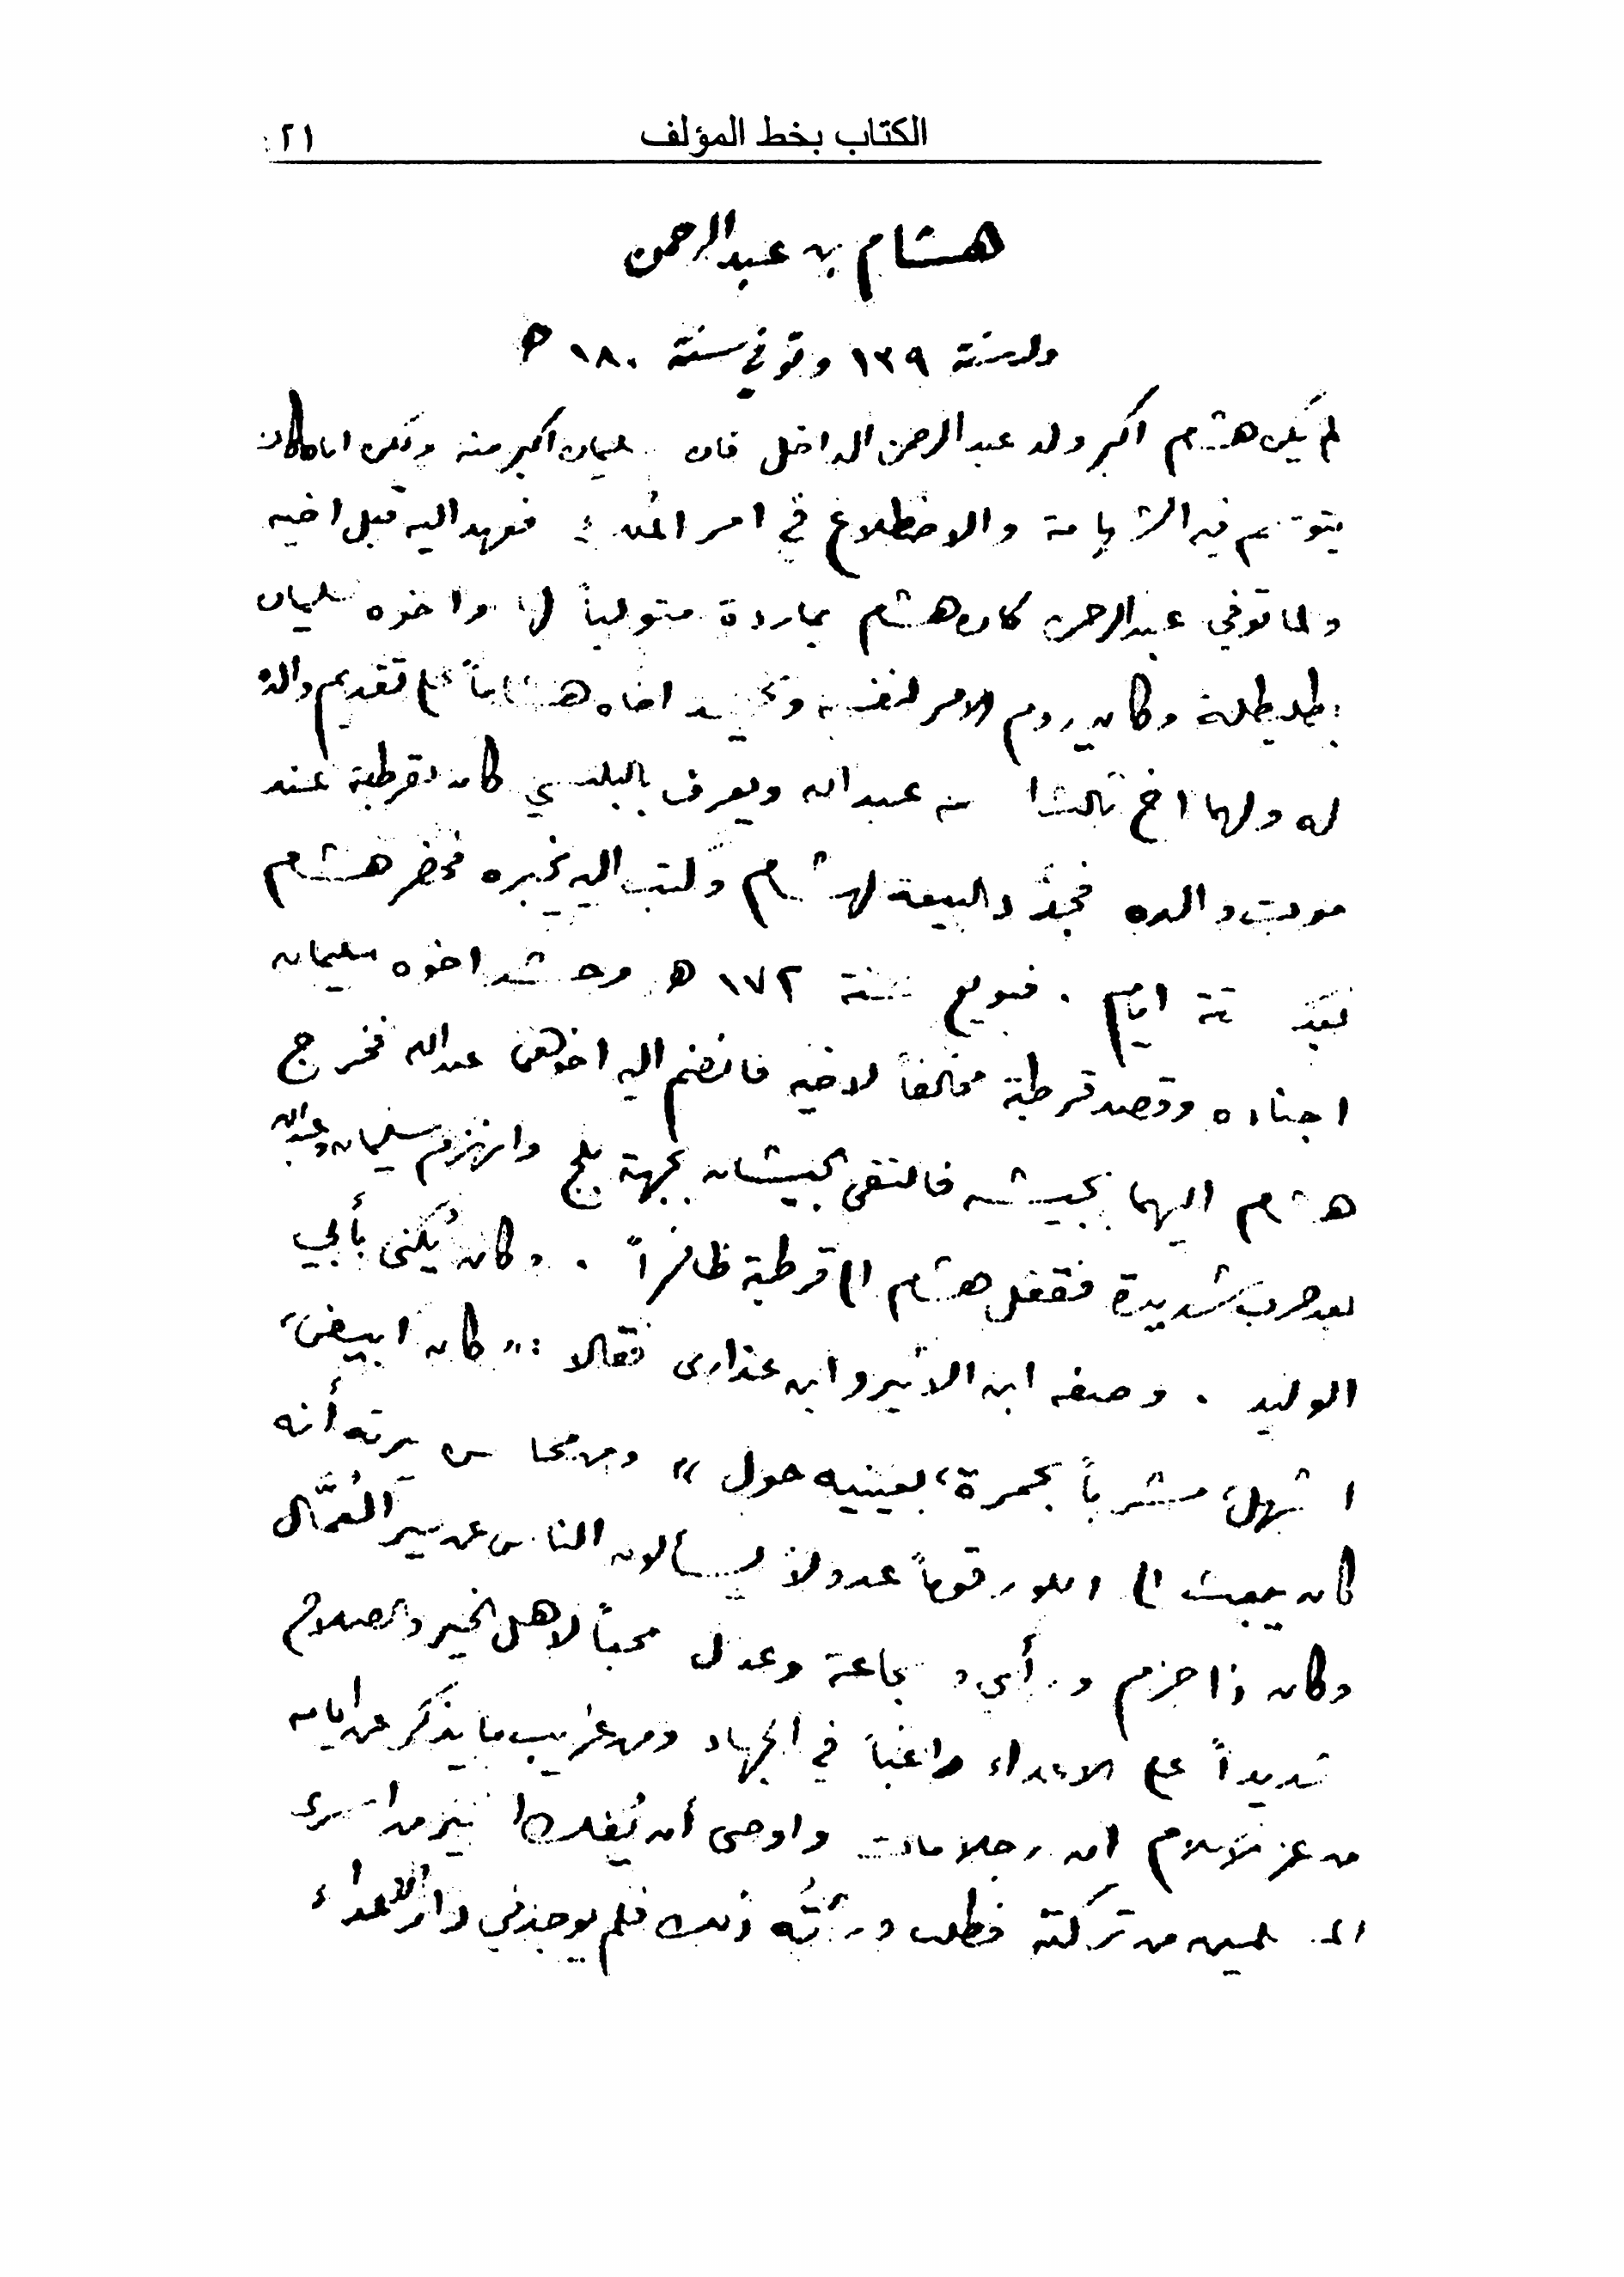 الكتاب بخط المؤلف ٢١
هشام بن عبدالرحمن
ولد سنة ١٣٩ وتوفي سنة ١٨٠ ه
لم يكن هشام اكبر ولد عبد الرحمن الداخل فان سليمان اكبر منه ولكن اباه كان
يتوسم فيه الشهامة والاضطلاع في امر الملك ؛ فعهد اليه قبل اخيه
ولما توفي عبدالرحمن كان هشام بماردة متولياً لها واخوه سليمان
بطليطلة وكان يروم الامر لنفسه ويحسد اخاه هشاماً على تقديم والده
له ولهما اخ ثالث اسمه عبدالله ويعرف بالبلنسي كان بقرطبة عند
موت والده فجدّد البيعة لهشام وكتب اليه يخبره فحضر هشام
بعد ستة ايام . فبويع سنة ١٧٢ ه وحشد اخوه سليمان
اجناده وقصد قرطبة مخالفاً لاخيه فانضم اليه اخوهما عبدالله فخرج
هشام اليهما بجيشه فالتقى الجيشان بجهة بلج وانهزم سليمان وعبدالله
بعد حرب شديدة فقفل هشام الى قرطبة ظافراً . وكان يُكنى بأبي
الوليد . وصفه ابن الاثير وابن عذارى فقالا : " كان ابيض،
اشهل، مشرباً بحمرة، بعينيه حول " ومن محاسن سيرته أنه
كان يبعث الى الكور قوماً عدولاً يسألون الناس عن سير العُمَّال
وكان ذا حزم ورأي وشجاعة وعدل محباً لاهل الخير والصلاح
شديداً على الاعداء راغباً في الجهاد ومن غريب ما يذكر عن ايامه
من عز الاسلام ان رجلا مات واوصى أن يُفك اسير من اسرى
المسلمين من تركته فطلب ورثته ذلك فلم يوجد في دار الاعداء